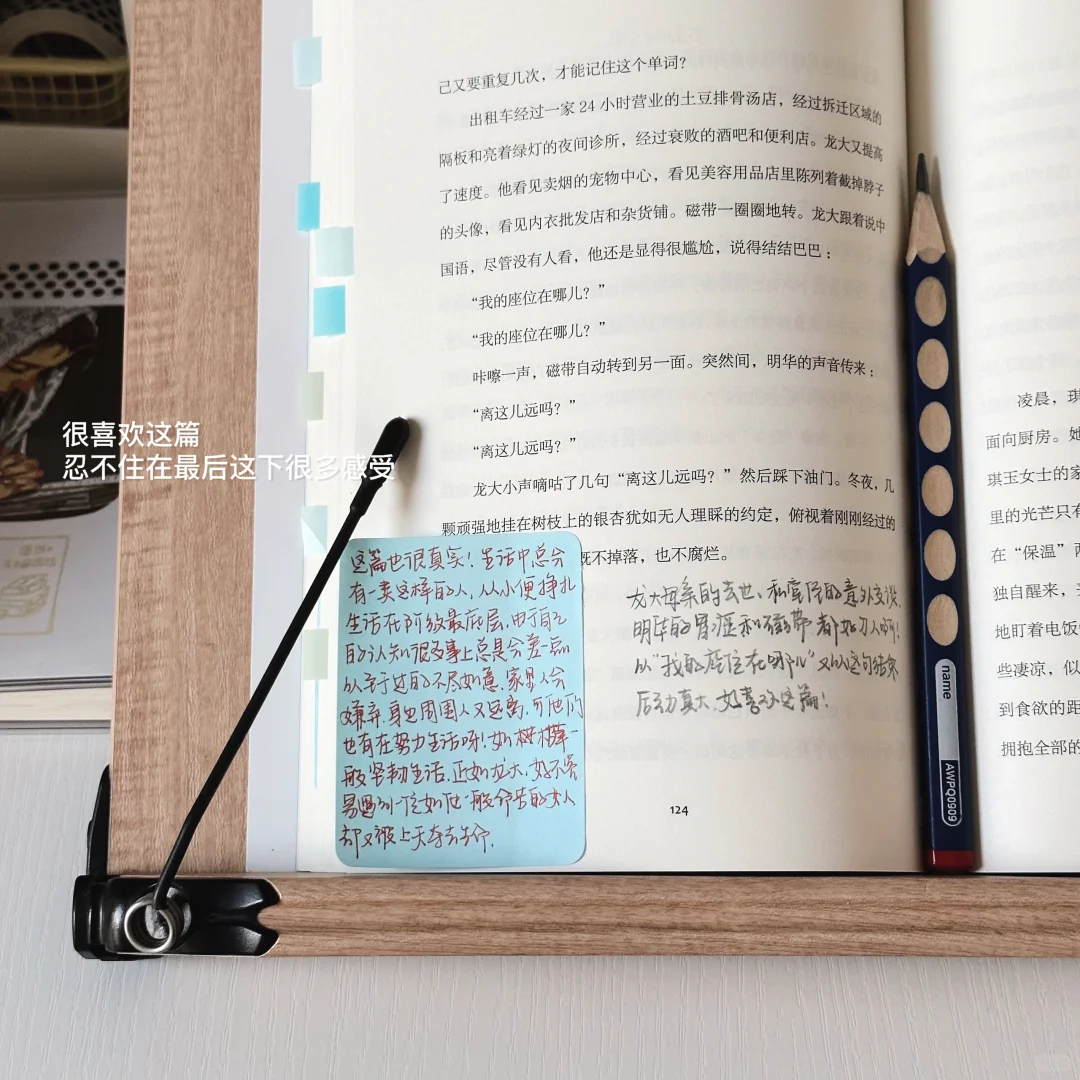 己又要重复几次，才能记住这个单词？
出租车经过一家 24 小时营业的土豆排骨汤店，经过拆迁区域的
隔板和亮着绿灯的夜间诊所，经过衰败的酒吧和便利店。龙大又提高
了速度。他看见卖烟的宠物中心，看见美容用品店里陈列着截掉脖子
的头像，看见内衣批发店和杂货铺。磁带一圈圈地转。龙大跟着说中
国语，尽管没有人看，他还是显得很尴尬，说得结结巴巴：
“我的座位在哪儿？”
“我的座位在哪儿？”
咔嚓一声，磁带自动转到另一面。突然间，明华的声音传来：
“离这儿远吗？”
“离这儿远吗？”
龙大小声嘀咕了几句“离这儿远吗？”然后踩下油门。冬夜，几
颗顽强地挂在树枝上的银杏犹如无人理睬的约定，俯视着刚刚经过的
既不掉落，也不腐烂。
很喜欢这篇
忍不住在最后这下很多感受
这篇也很真实！生活中总会
有一类这样的人，从小便挣扎
生活在阶级最底层，由于自己
的认知很多事上总是会差一点
以至于过的不尽如意，家里人会
嫌弃，身边周围人又远离，可他们
也有在努力生活呀！如树獭一
般坚韧生活，正如龙大，好不容
易遇到一位如他一般命苦的女人
却又被上天夺去生命.
龙大母亲的去世、和房间的意外交谈，
明华的胃癌和磁带都如刀人啊！
以“我的座位在哪儿”又以这句结束
后劲真大，好喜欢这篇！
124
name
AWPQ0909
凌晨，琪
面向厨房。她
琪玉女士的家
里的光芒只有
在“保温”两
独自醒来，
地盯着电饭
些凄凉，似
到食欲的距
拥抱全部的